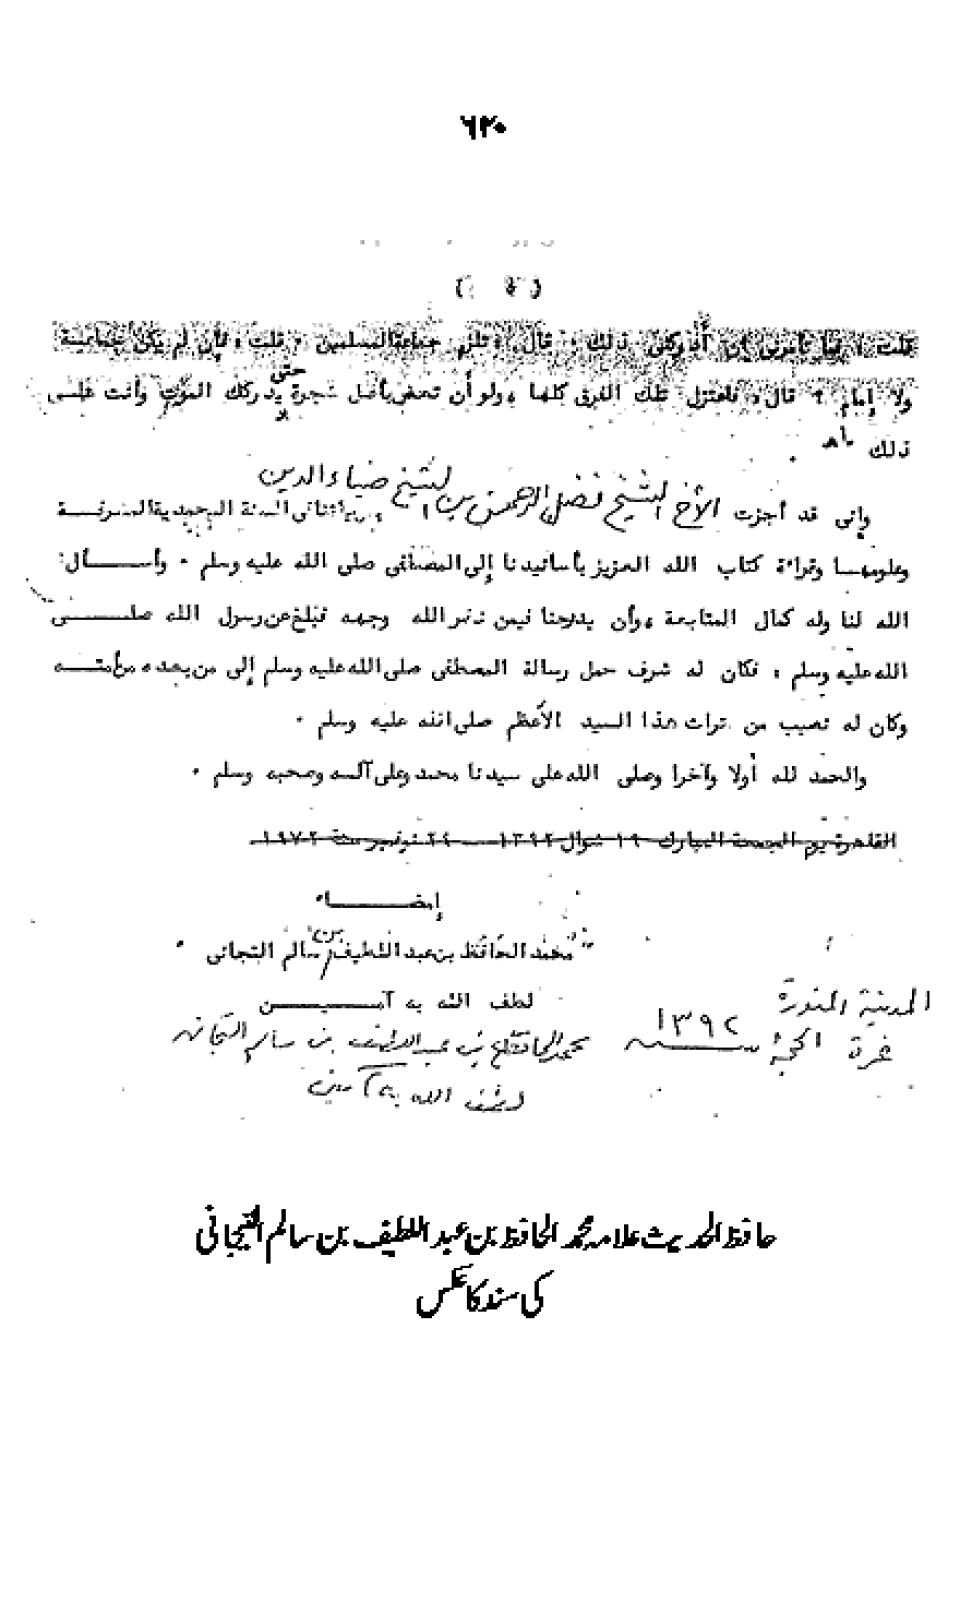 ٦٢٠
( ٤ )
قلت : فما تأمرني إن أدركني ذلك ؟ قال : تلزم جماعة المسلمين . قلت : فإن لم يكن جماعة
ولا إمام ؟ قال : فاعتزل تلك الفرق كلها ، ولو أن تعض بأصل شجرة حتى يدركك الموت وأنت على
ذلك اهـ .
وإني قد أجزت الأخ الشيخ فضل الرحمن بن الشيخ ضياء الدين السنة المحمدية المشرفة
وعلومها وقراءة كتاب الله العزيز بأسانيدنا إلى المصطفى صلى الله عليه وسلم . وأسأل
الله لنا وله كمال المتابعة ، وأن يدرجنا فيمن نضر الله وجهه فبلغ عن رسول الله صلى
الله عليه وسلم ، فكان له شرف حمل رسالة المصطفى صلى الله عليه وسلم إلى من بعده من أمته
وكان له نصيب من تراث هذا السيد الأعظم صلى الله عليه وسلم .
والحمد لله أولا وآخرا وصلى الله على سيدنا محمد وعلى آله وصحبه وسلم .
القاهرة يوم الجمعة المبارك ١٩ شوال ١٣٩٢ — ٢٤ نوفمبر سنة ١٩٧٢
إمضاء
محمد الحافظ بن عبد اللطيف بن سالم التجاني .
لطف الله به آمين
المدينة المنورة
غرة الحجة سنة ١٣٩٢
محمد الحافظ بن عبد اللطيف بن سالم التجاني
لطف الله به آمين
حافظ الحدیث علامہ محمد الحافظ بن عبد اللطیف بن سالم التیجانی
کی سند کا عکس